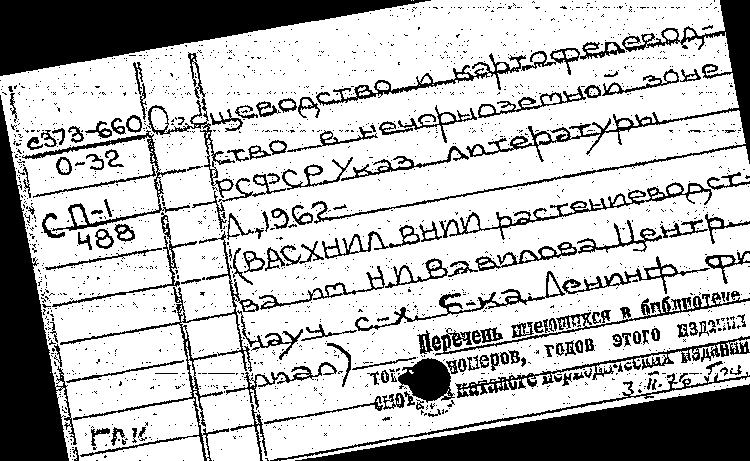 с373-660
О-32
СП-1
488
Овощеводство и картофелевод-
ство в нечерноземной зоне
РСФСР. Указ. литературы
Л., 1962-
(ВАСХНИЛ. ВНИИ растениеводст-
ва им. Н.И. Вавилова. Центр.
науч. с.-х. б-ка. Ленингр. фи
лиал)
Перечень имеющихся в библиотеке
номеров, годов этого издания
каталоге периодических изданий
3.II.76
ГПК